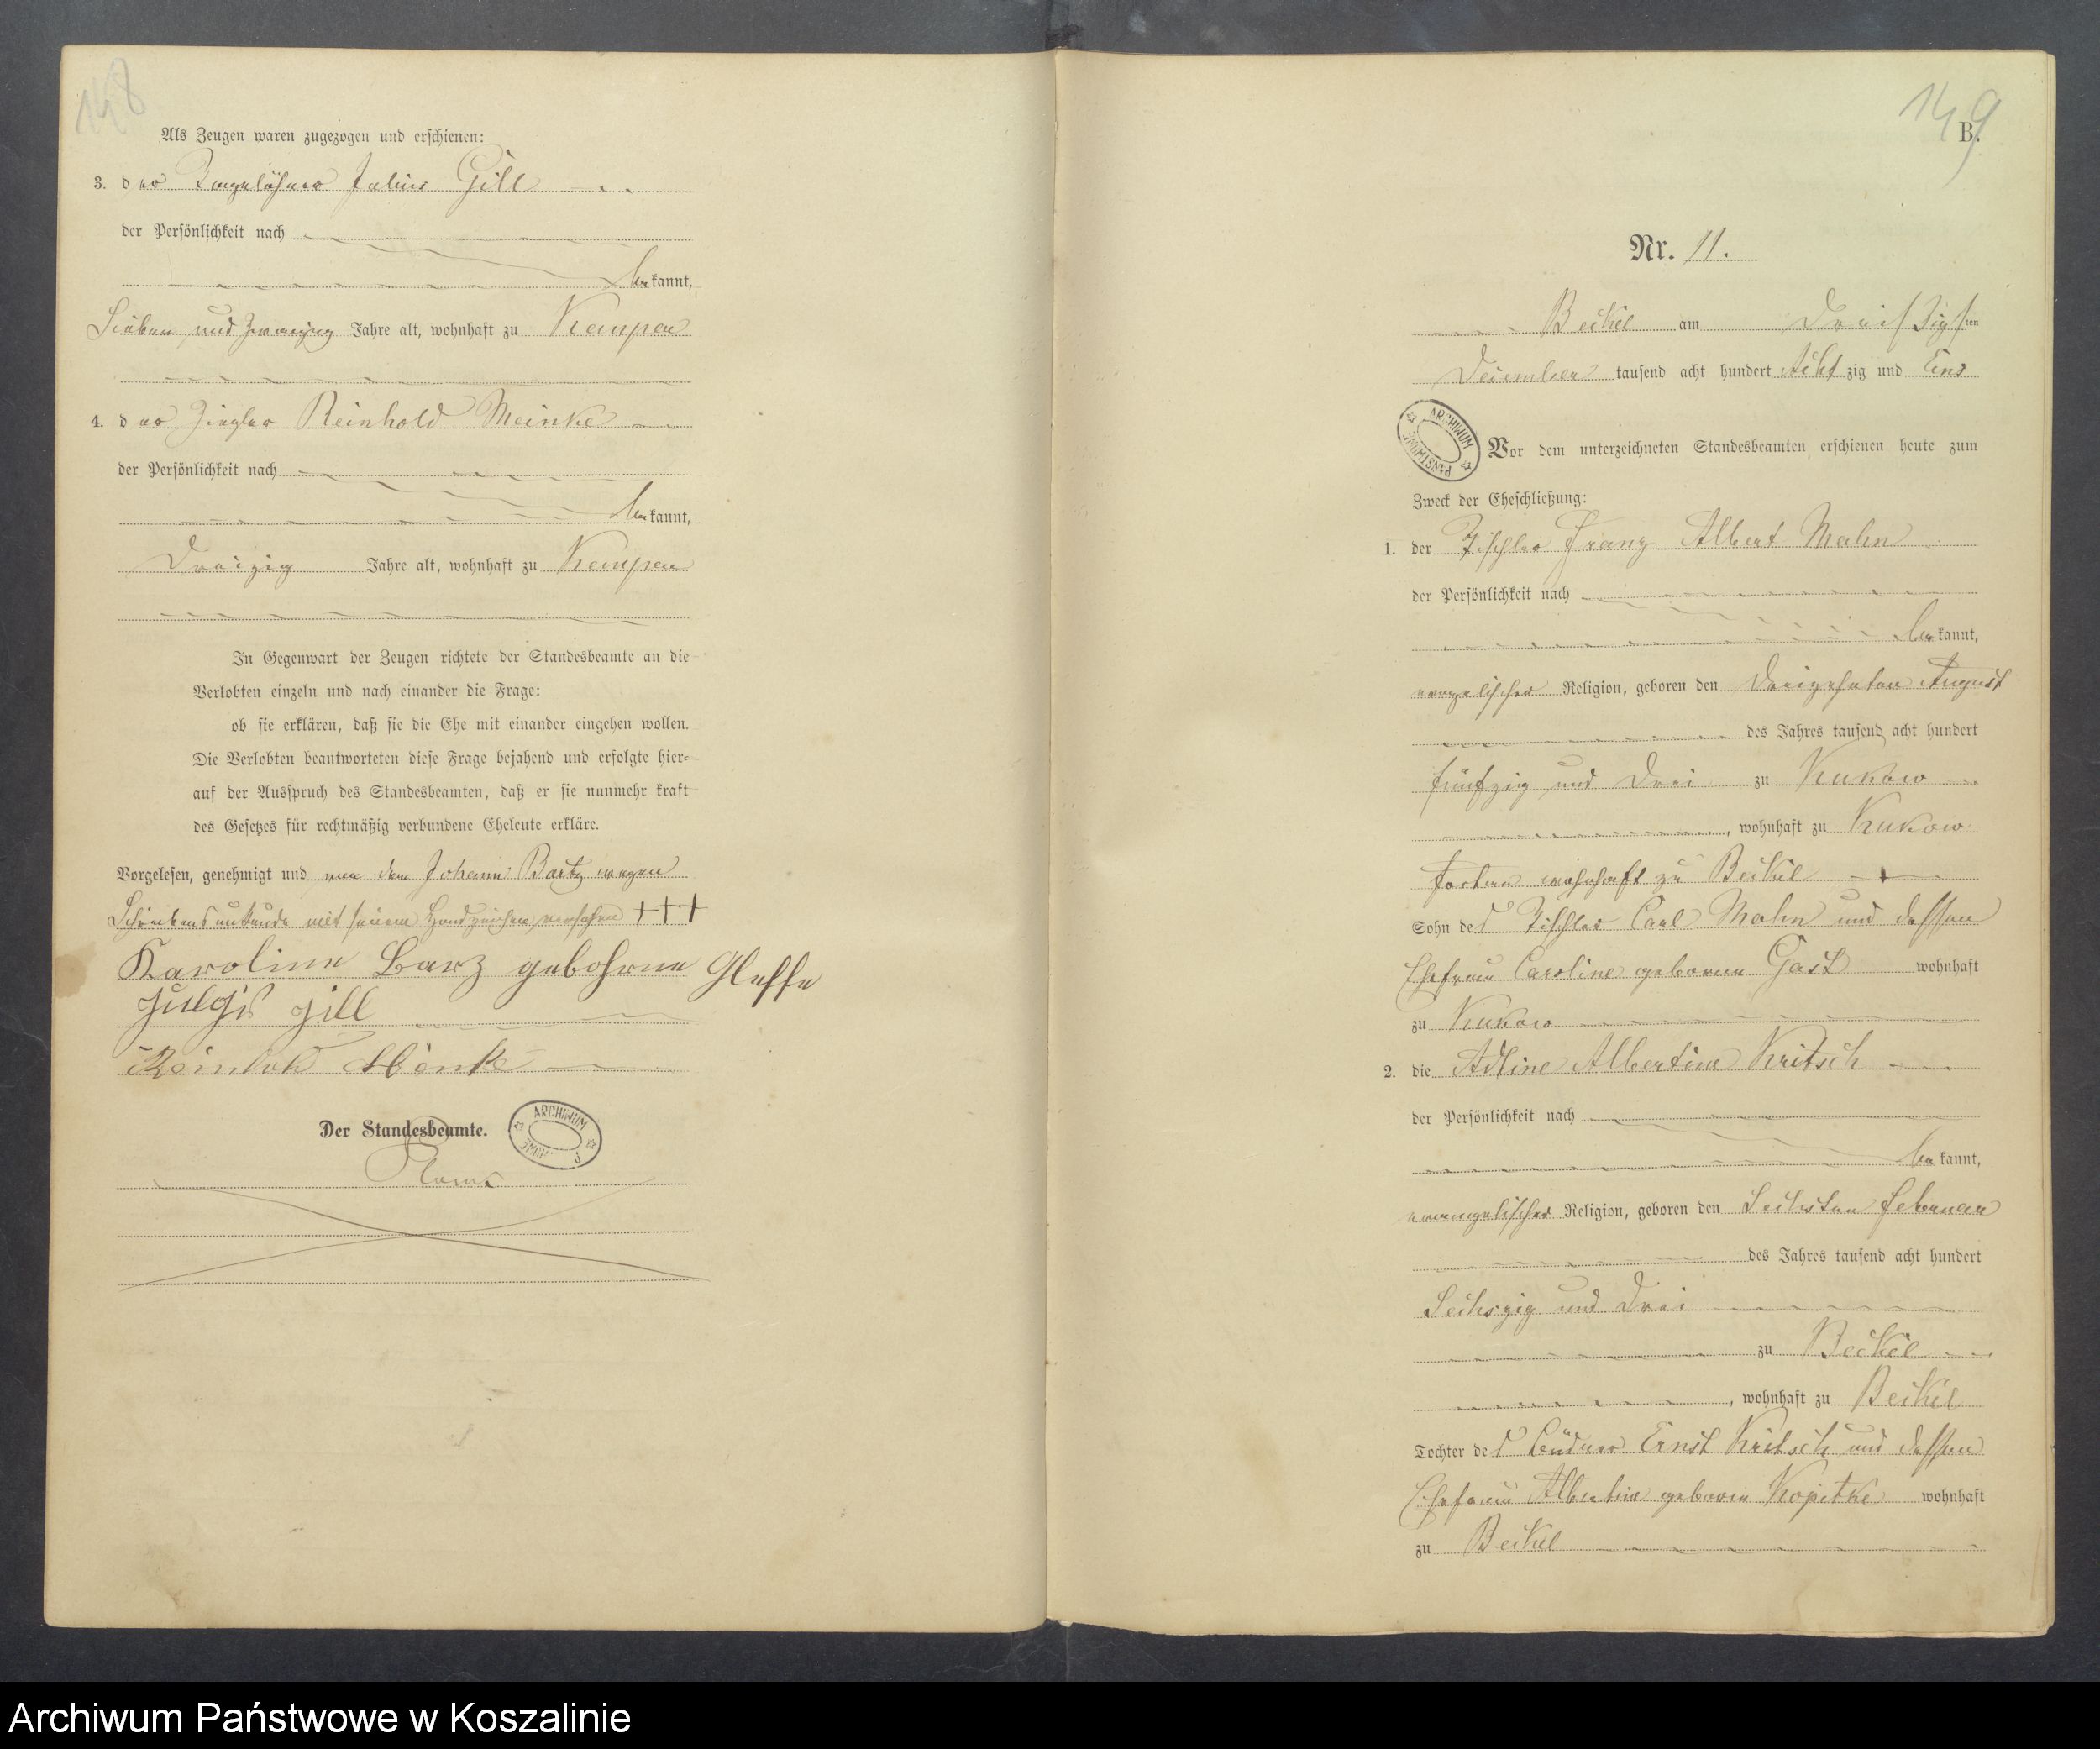 148
Als Zeugen waren zugezogen und erschienen:
3. der Tagelöhner Julius Gill
der Persönlichkeit nach
bekannt,
Sieben und Zwanzig Jahre alt, wohnhaft zu Kempen
4. der Ziegler Reinhold Meinke
der Persönlichkeit nach
bekannt,
Dreizig Jahre alt, wohnhaft zu Kempen
In Gegenwart der Zeugen richtete der Standesbeamte an die
Verlobten einzeln und nach einander die Frage:
ob sie erklären, daß sie die Ehe mit einander eingehen wollen.
Die Verlobten beantworteten diese Frage bejahend und erfolgte hier-
auf der Ausspruch des Standesbeamten, daß er sie nunmehr kraft
des Gesetzes für rechtmäßig verbundene Eheleute erkläre.
Vorgelesen, genehmigt und von dem Johann Bartz wegen
Schreibensunkunde mit seinem Handzeichen versehen +++
Karoline Barz gebohrne Gleffe
Gill
Reinhold Meinke
Der Standesbeamte.
ARCHIWUM
149
B.
Nr. 11.
Beikel am Dreißigsten
December tausend acht hundert Achtzig und Eins
ARCHIWUM PAŃSTWOWE
Vor dem unterzeichneten Standesbeamten erschienen heute zum
Zweck der Eheschließung:
1. der Tischler Franz Albert Mahn
der Persönlichkeit nach
bekannt,
evangelischer Religion, geboren den Dreizehnten August
des Jahres tausend acht hundert
fünfzig und Drei zu Kukow
, wohnhaft zu Kukow
wohnhaft zu Beikel
Sohn des Tischler Carl Mahn und dessen
Ehefrau Caroline geborene Gast wohnhaft
zu Kukow
2. die Adline Albertine Kritsch
der Persönlichkeit nach
bekannt,
evangelischer Religion, geboren den Sechsten Februar
des Jahres tausend acht hundert
Sechszig und Drei
zu Beikel
, wohnhaft zu Beikel
Tochter des Büdner Ernst Kritsch und dessen
Ehefrau Albertine geborne Kopitke wohnhaft
zu Beikel
Archiwum Państwowe w Koszalinie